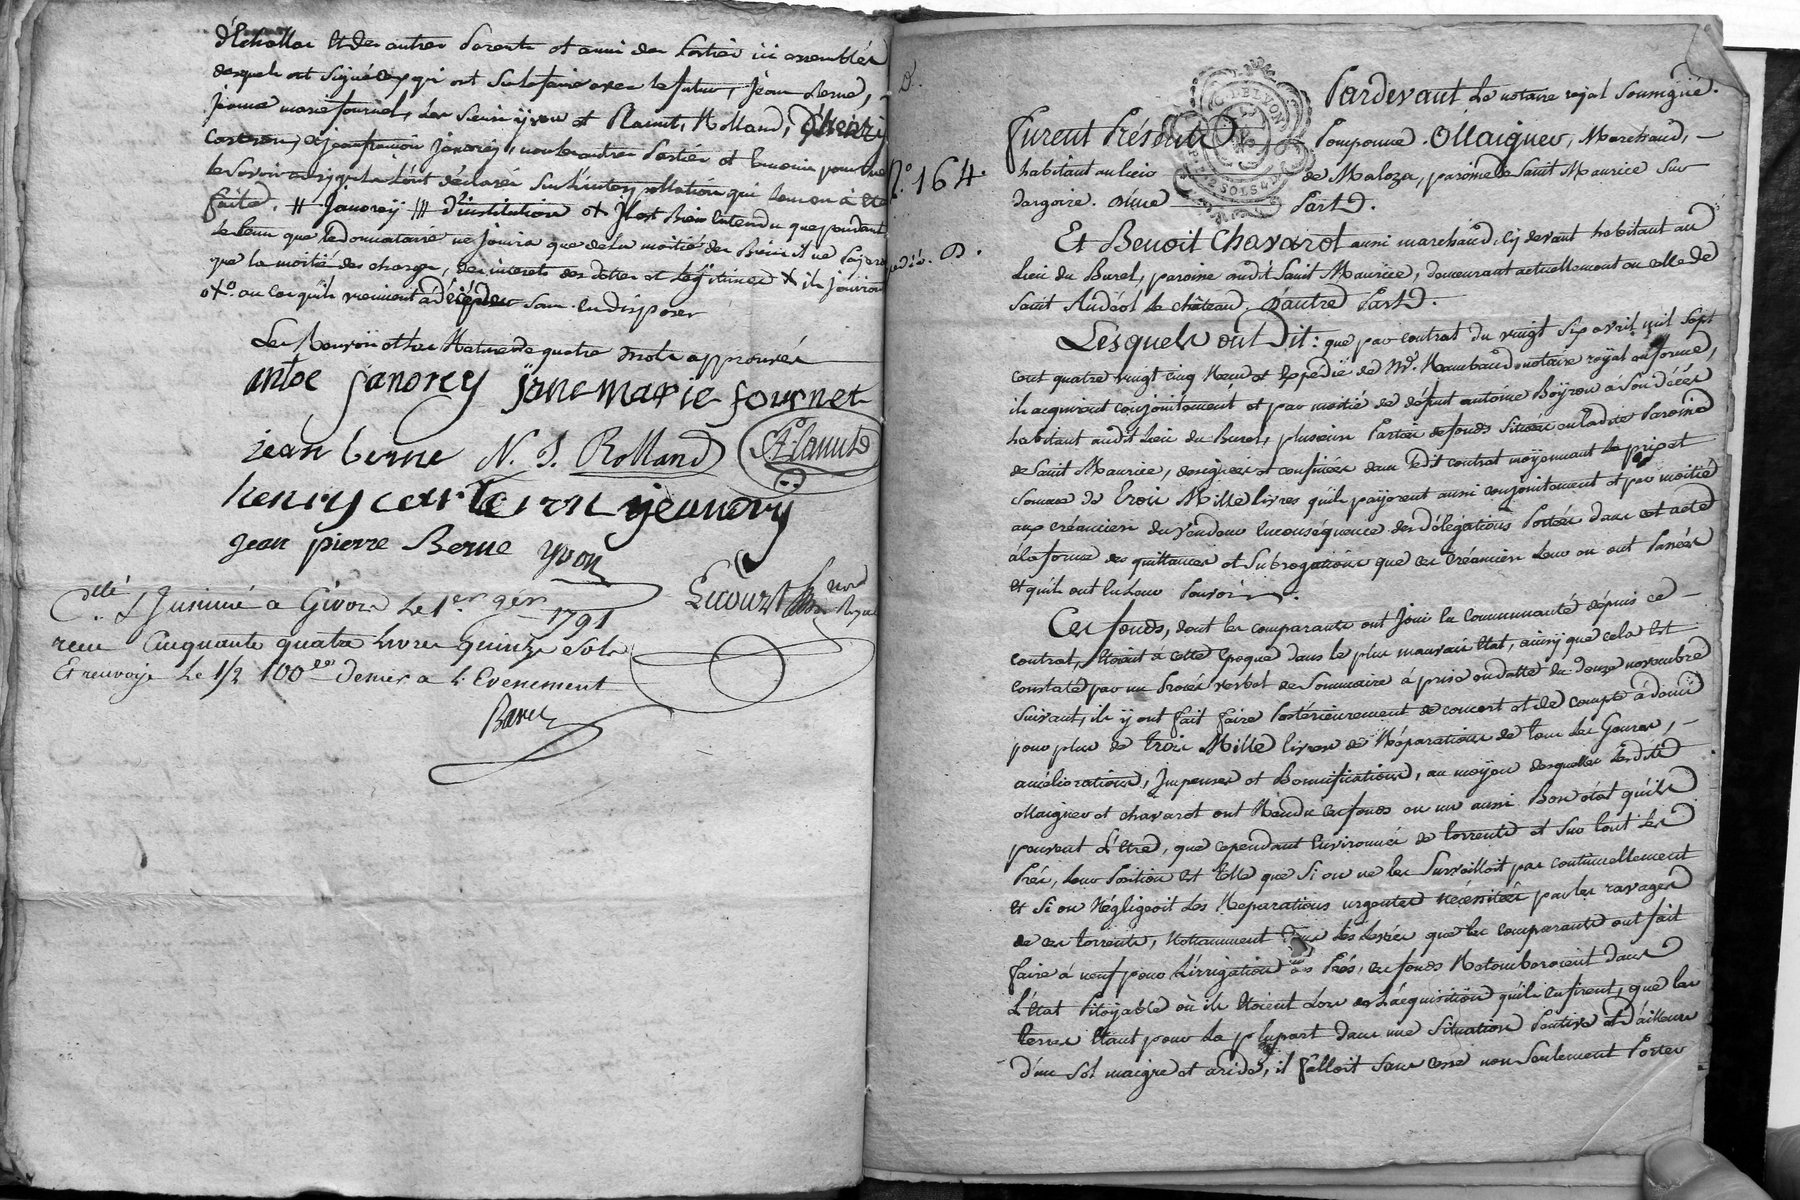 d'Echallas et des autres Parents et amis des Parties ici assemblés
desquels ont signé ceux qui ont su le faire avec le futur, Jean Berne,
jeanne marie fournel, les Sieurs yvon et Rolland, d'henri
Corteron, et jean janorey, non les autres Parties et temoins pour ne
le savoir ainsy qu'ils l'ont déclaré sur l'interpellation qui leur en a été
faite. # Janoreÿ ### d'institution et Il est Bien entendu que pendant
le tems que le donnataire ne jouira que de la moitié des Biens il ne payera
que la moitié des charges, des interets des dettes et légitimes & ils jouiront
ou au cas qu'ils vinssent à décéder sans en disposer
Les Renvois et les Ratures de quatre mots approuvés
antoe janorey jane marie fournel
jean berne N. J. Rolland
henry corteron jeanory
jean pierre Berne yvon
C.llé & Insinué a Givors Le 1er
1791
reçu Cinquante quatre Livres quinze sols
Et renvoyé Le 1/2 100e denier a l'Evenement
Nore Royal
N.º 164.
Pardevant Le notaire royal Soussigné.
furent Présents Pomponne Ollaignier, Marchand,
habitant au lieu de Maloza, paroisse de Saint Maurice sur
dargoire. d'une Part.
C. DE LYON
2 SOLS 4 D
Et Benoit Chavarot aussi marchand, cy devant habitant au
Lieu du Burel, paroisse audit Saint Maurice, demeurant actuellement en celle de
Saint Andéol Le Château, d'autre Part.
Lesquels ont Dit: que par contrat du vingt six avril mil sept
cent quatre vingt cinq Reçu et Expédié de Mr. notaire royal en forme,
ils acquirent conjointement et par moitié de défunt antoine Boyron a son décès
habitant audit Lieu du Burel, plusieurs Parties de fonds situées en ladite Paroisse
de Saint Maurice, designées et confinées dans ledit contrat moÿennant le prix et
somme de trois Mille livres qu'ils payerent aussi conjointement et par moitié
aux créanciers du vendeur en conséquence des délégations Portées dans cet acte
a la forme des quittances et subrogations que ces créanciers leur en ont Passées
et qu'ils ont en leur Pouvoir.
Ces fonds, dont les comparants ont joui en communauté depuis ce
contrat, étoient à cette époque dans le plus mauvais état, ainsy que cela est
constaté par un Procès verbal de Sommaire à prise en datte du douze novembre
suivant, ils y ont fait faire Postérieurement de concert et de compte à demi
pour plus de trois Mille livres de Réparations de tous les Genres,
améliorations, Impenses et Bonnifications, au moÿen desquelles lesdits
Ollaignier et Chavarot ont Rendu ces fonds en un aussi Bon état qu'ils
peuvent L'être, que cependant Environnés de torrents et sur tout les
Prés, leur Position est telle que si on ne les surveilloit pas continuellement
et si on négligeoit les Réparations urgentes nécessitées par les ravages
de ces torrents, Notamment dans les levées que les comparants ont fait
faire à neuf pour l'irrigation des Prés, ces fonds Retomberoient dans
l'état Pitoÿable où ils étoient lors de l'acquisition qu'ils en firent, que les
terres étant pour la plupart dans une situation Pentive et d'ailleurs
d'un sol maigre et aride, il falloit sans cesse non seulement Porter